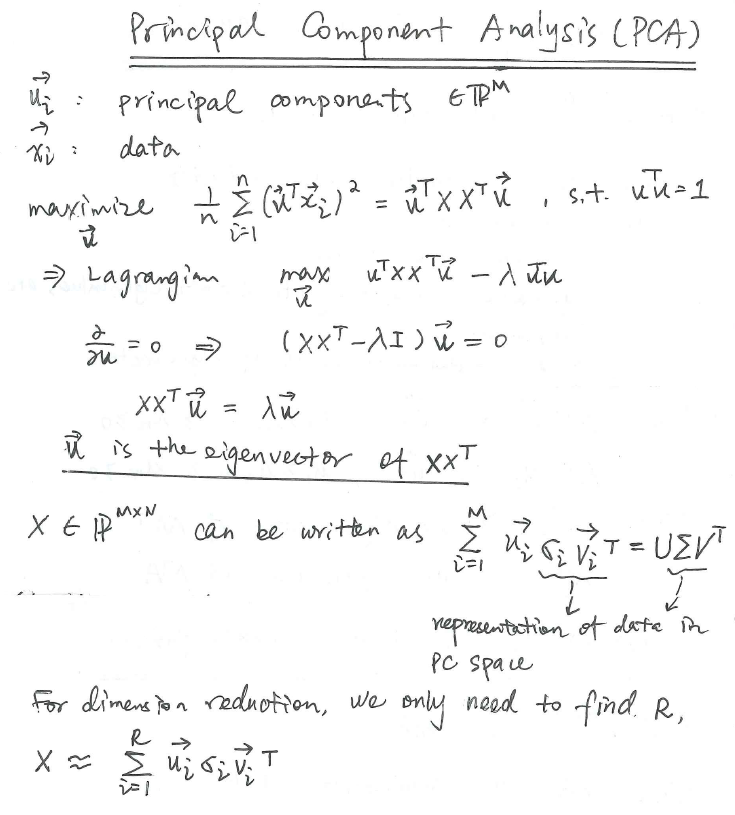 Principal Component Analysis (PCA)
u⃗ᵢ : principal components ∈ ℝᴹ
x⃗ᵢ : data
maximize_u⃗ 1/n Σᵢ₌₁ⁿ (u⃗ᵀx⃗ᵢ)² = u⃗ᵀXXᵀu⃗ , s.t. uᵀu=1
⇒ Lagrangian max_u⃗ uᵀXXᵀu⃗ − λ uᵀu
∂/∂u = 0 ⇒ (XXᵀ−λI) u⃗ = 0
XXᵀu⃗ = λu⃗
u⃗ is the eigenvector of XXᵀ
X ∈ ℝᴹˣᴺ can be written as Σᵢ₌₁ᴹ u⃗ᵢ σᵢ v⃗ᵢᵀ = UΣVᵀ
representation of data in
PC space
For dimension reduction, we only need to find R,
X ≈ Σᵢ₌₁ᴿ u⃗ᵢ σᵢ v⃗ᵢᵀ